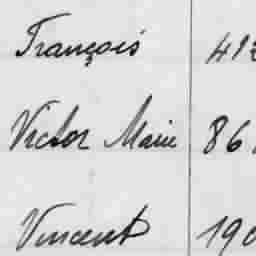 François 412
Victor Marie 86
Vincent 190